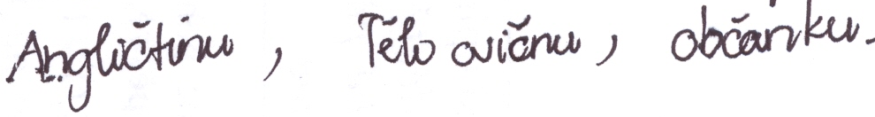 Angličtinu, Tělo cvičnu, občánku.